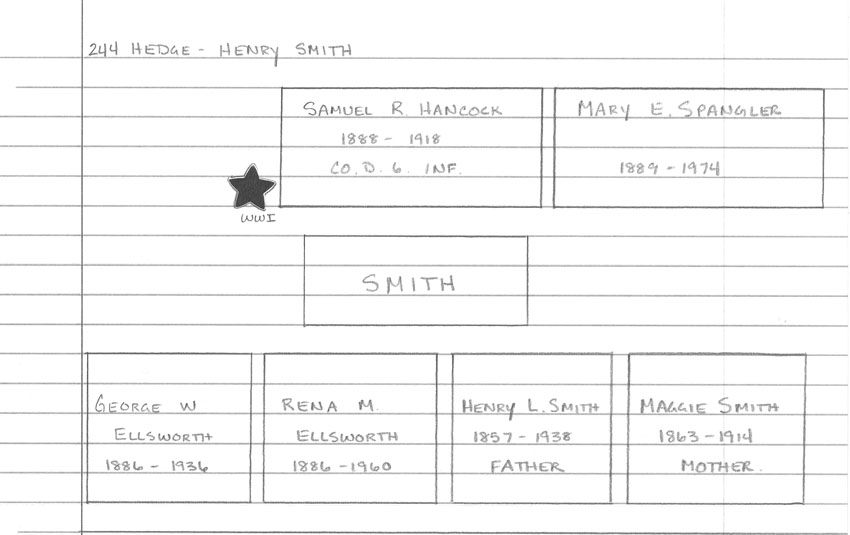 244 HEDGE - HENRY SMITH
SAMUEL R. HANCOCK
1888 - 1918
CO. D. 6. INF.
MARY E. SPANGLER
1889 - 1974
WWI
SMITH
GEORGE W
ELLSWORTH
1886 - 1936
RENA M.
ELLSWORTH
1886 - 1960
HENRY L. SMITH
1857 - 1938
FATHER
MAGGIE SMITH
1863 - 1914
MOTHER.